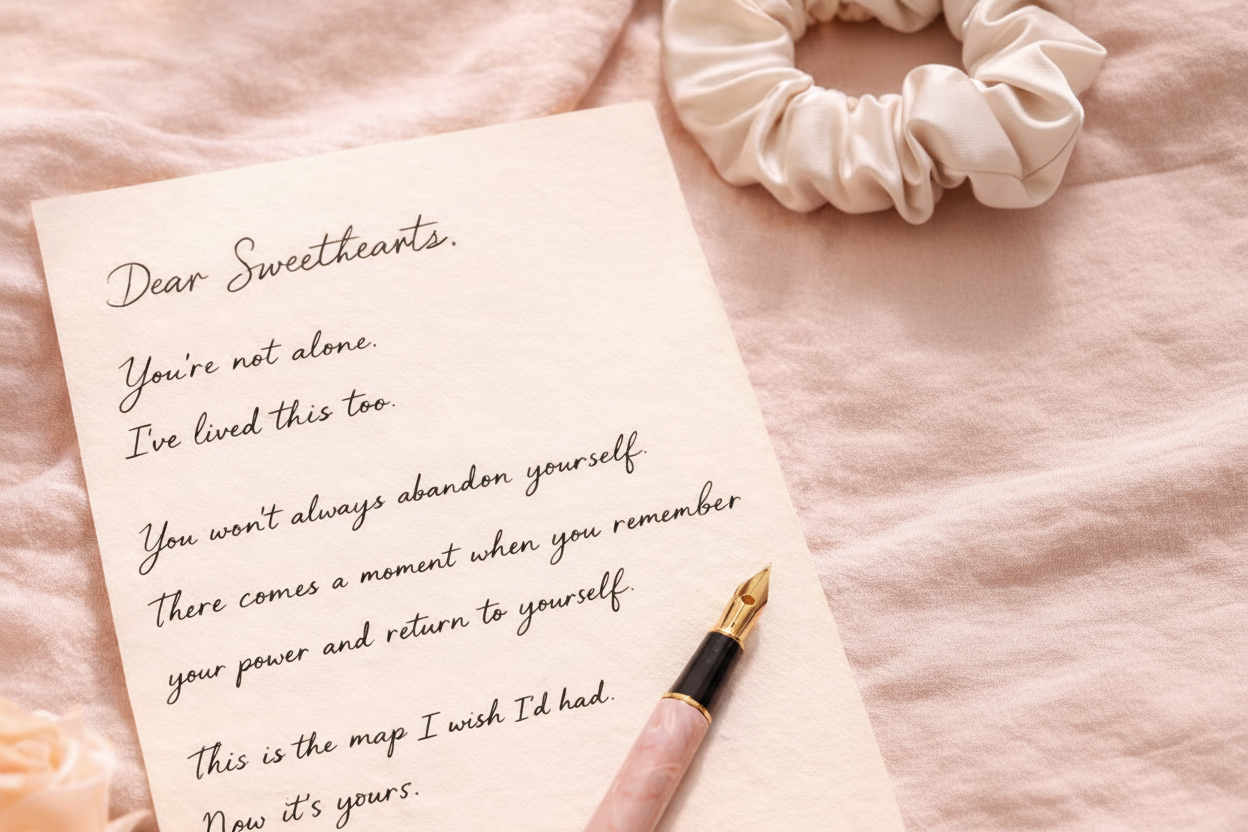 Dear Sweethearts.
You're not alone.
I've lived this too.
You won't always abandon yourself.
There comes a moment when you remember
your power and return to yourself.
This is the map I wish I'd had.
Now it's yours.